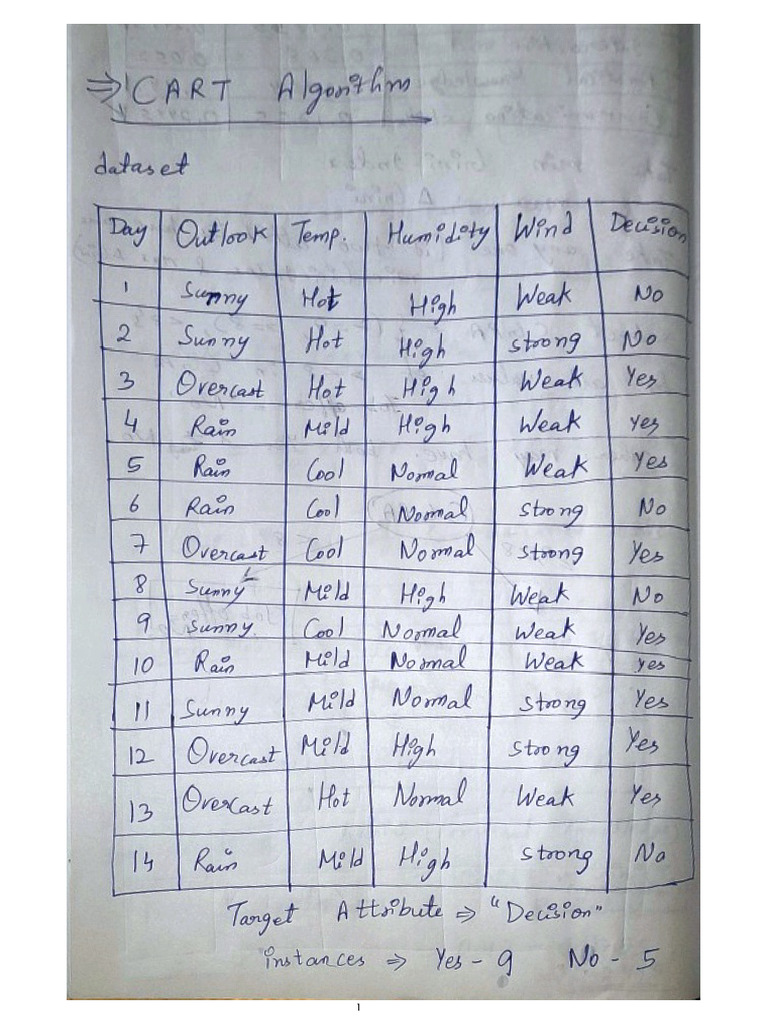 ⇒ CART Algorithm
dataset
Day Outlook Temp. Humidity Wind Decision
1 Sunny Hot High Weak No
2 Sunny Hot High strong No
3 Overcast Hot High Weak Yes
4 Rain Mild High Weak Yes
5 Rain Cool Normal Weak Yes
6 Rain Cool Normal strong No
7 Overcast Cool Normal strong Yes
8 Sunny Mild High Weak No
9 Sunny Cool Normal Weak Yes
10 Rain Mild Normal Weak Yes
11 Sunny Mild Normal Strong Yes
12 Overcast Mild High Strong Yes
13 Overcast Hot Normal Weak Yes
14 Rain Mild High Strong No
Target Attribute ⇒ "Decision"
instances ⇒ Yes - 9 No - 5
1